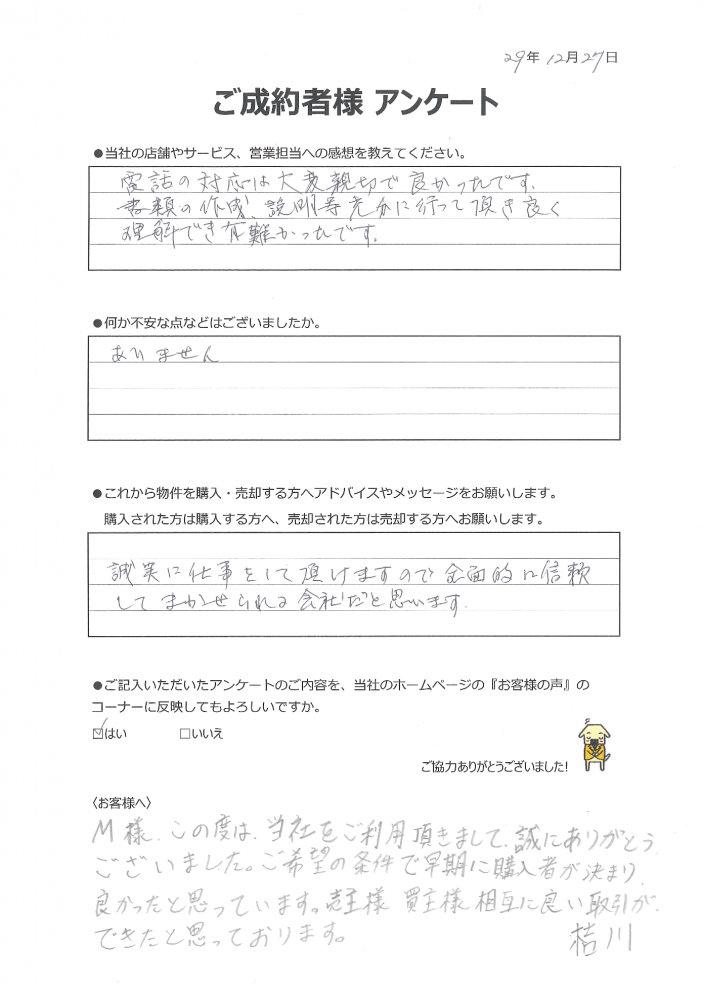 29年 12月 27日
ご成約者様 アンケート
●当社の店舗やサービス、営業担当への感想を教えてください。
電話の対応は大変親切で良かったです、
書類の作成、説明等充分に行って頂き良く
理解でき有難かったです。
●何か不安な点などはございましたか。
ありません
●これから物件を購入・売却する方へアドバイスやメッセージをお願いします。
購入された方は購入する方へ、売却された方は売却する方へお願いします。
誠実に仕事をして頂けますので全面的に信頼
してまかせられる会社だと思います。
●ご記入いただいたアンケートのご内容を、当社のホームページの『お客様の声』の
コーナーに反映してもよろしいですか。
☑はい □いいえ
ご協力ありがとうございました!
〈お客様へ〉
M様、この度は、当社をご利用頂きまして、誠にありがとう
ございました。ご希望の条件で早期に購入者が決まり
良かったと思っています。売主様 買主様 相互に良い取引が
できたと思っております。 桔川